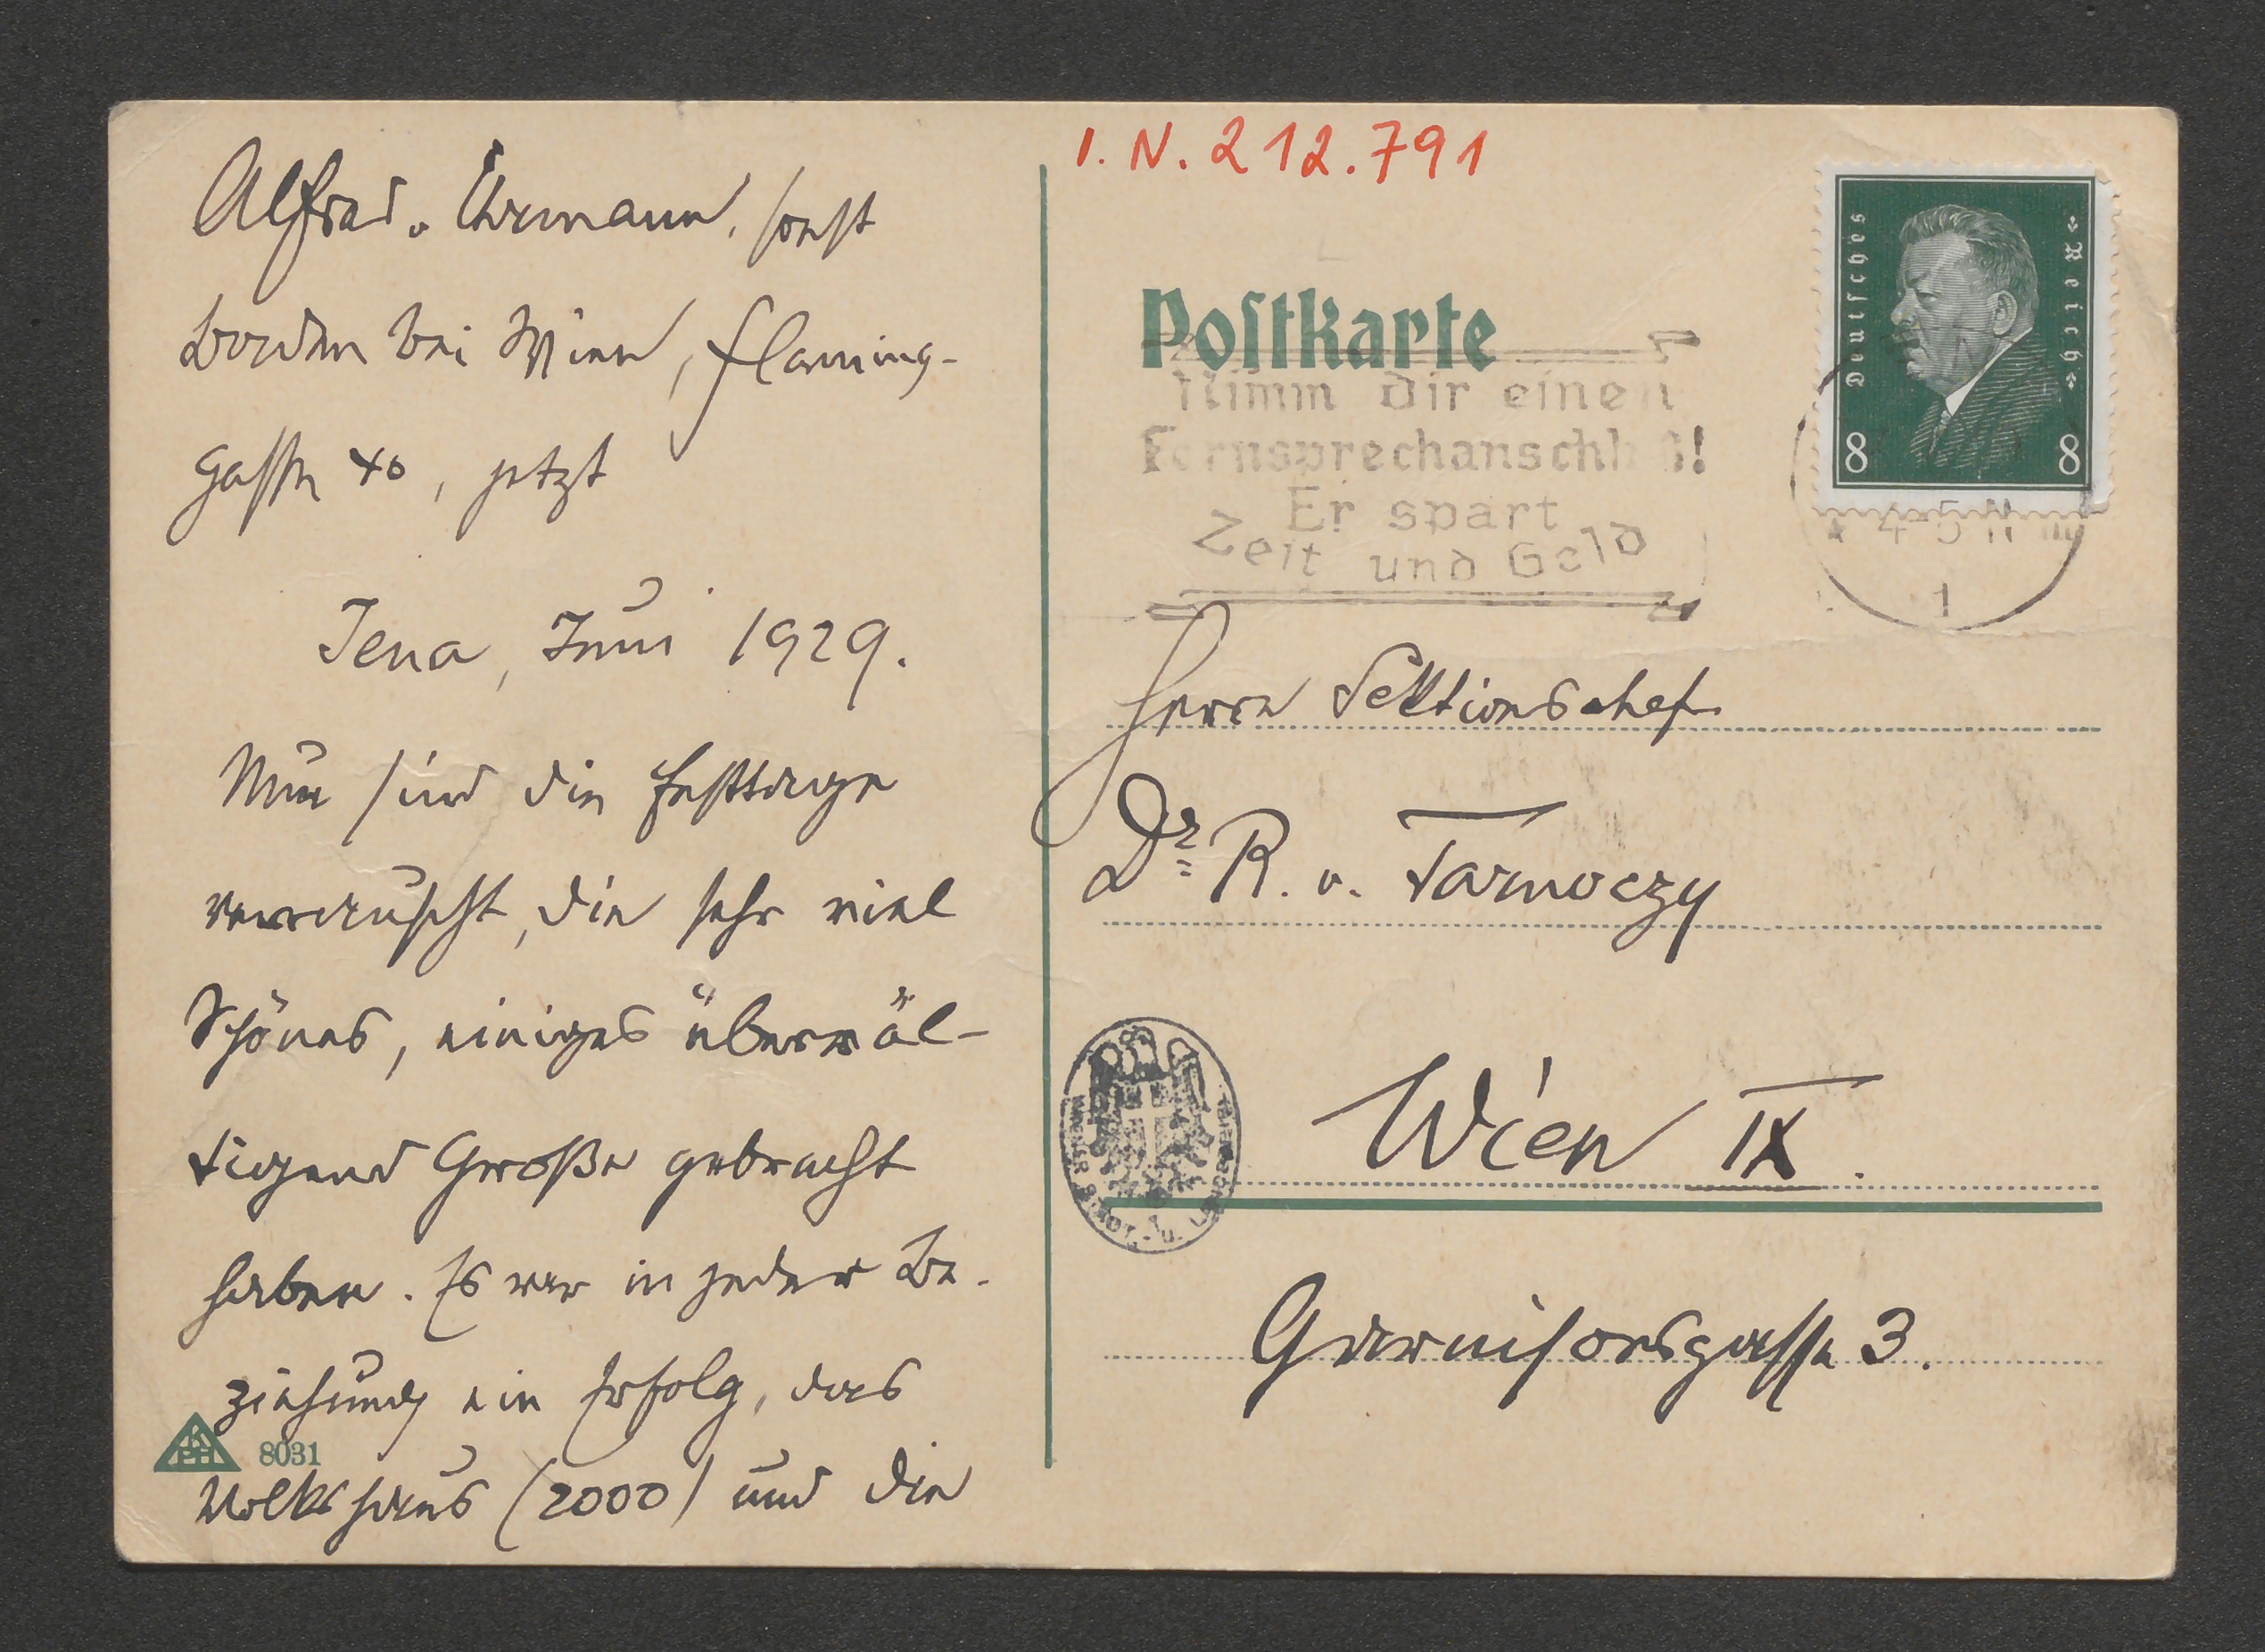 Alfred v. Ehrmann, sonst
Baden bei Wien, Flaming-
gasse 40, jetzt
Jena, Juni 1929.
Nun sind die Festtage
verrauscht, die sehr viel
Schönes, einiges überwäl-
tigend Große gebracht
haben. Es war in jeder Be-
ziehung ein Erfolg, das
Volkshaus (2000) und die
8031
I. N. 212.791
Postkarte
Deutsches Reich
8 8
Nimm dir einen
Fernsprechanschluß!
Er spart
Zeit und Geld
1
Herrn Sektionschef
Dr. R. v. Tarnoczy
Wien IX.
Garnisonsgasse 3.